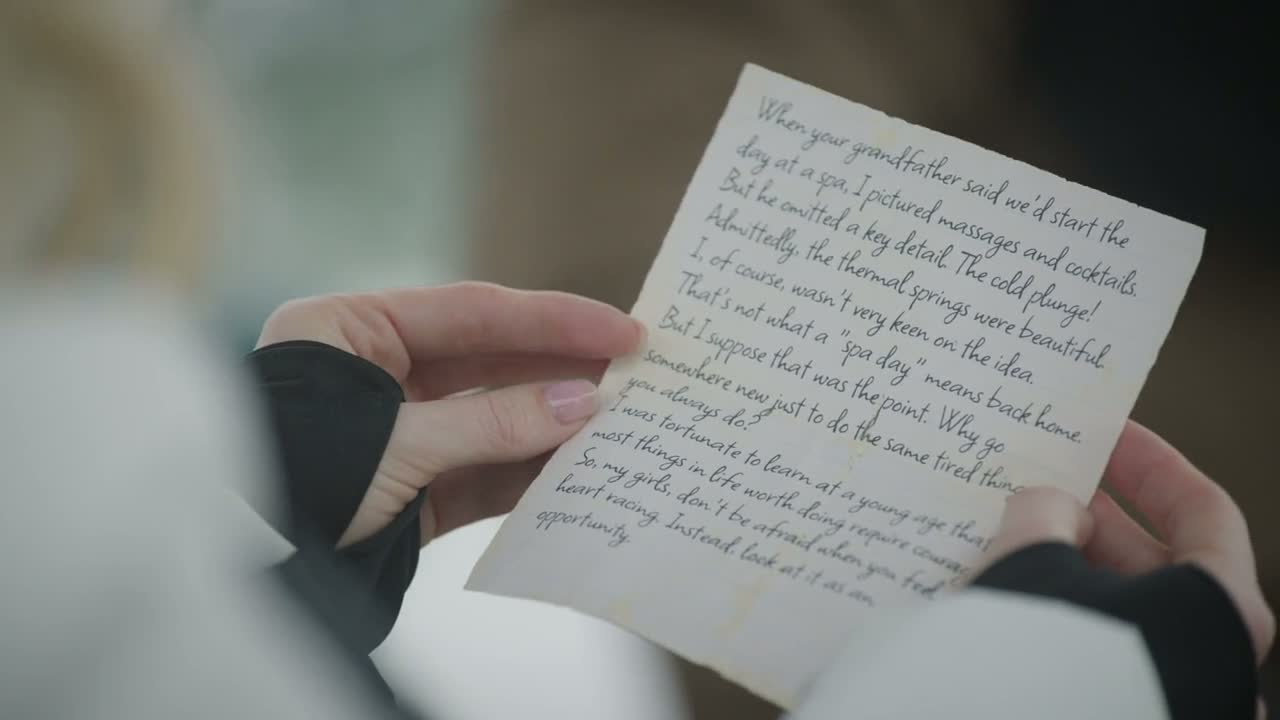 When your grandfather said we'd start the
day at a spa, I pictured massages and cocktails.
But he omitted a key detail. The cold plunge!
Admittedly, the thermal springs were beautiful.
I, of course, wasn't very keen on the idea.
That's not what a "spa day" means back home.
But I suppose that was the point. Why go
somewhere new just to do the same tired
you always do?
I was fortunate to learn at a young age
most things in life worth doing require
So, my girls, don't be afraid when you feel
heart racing. Instead, look at it as an
opportunity.